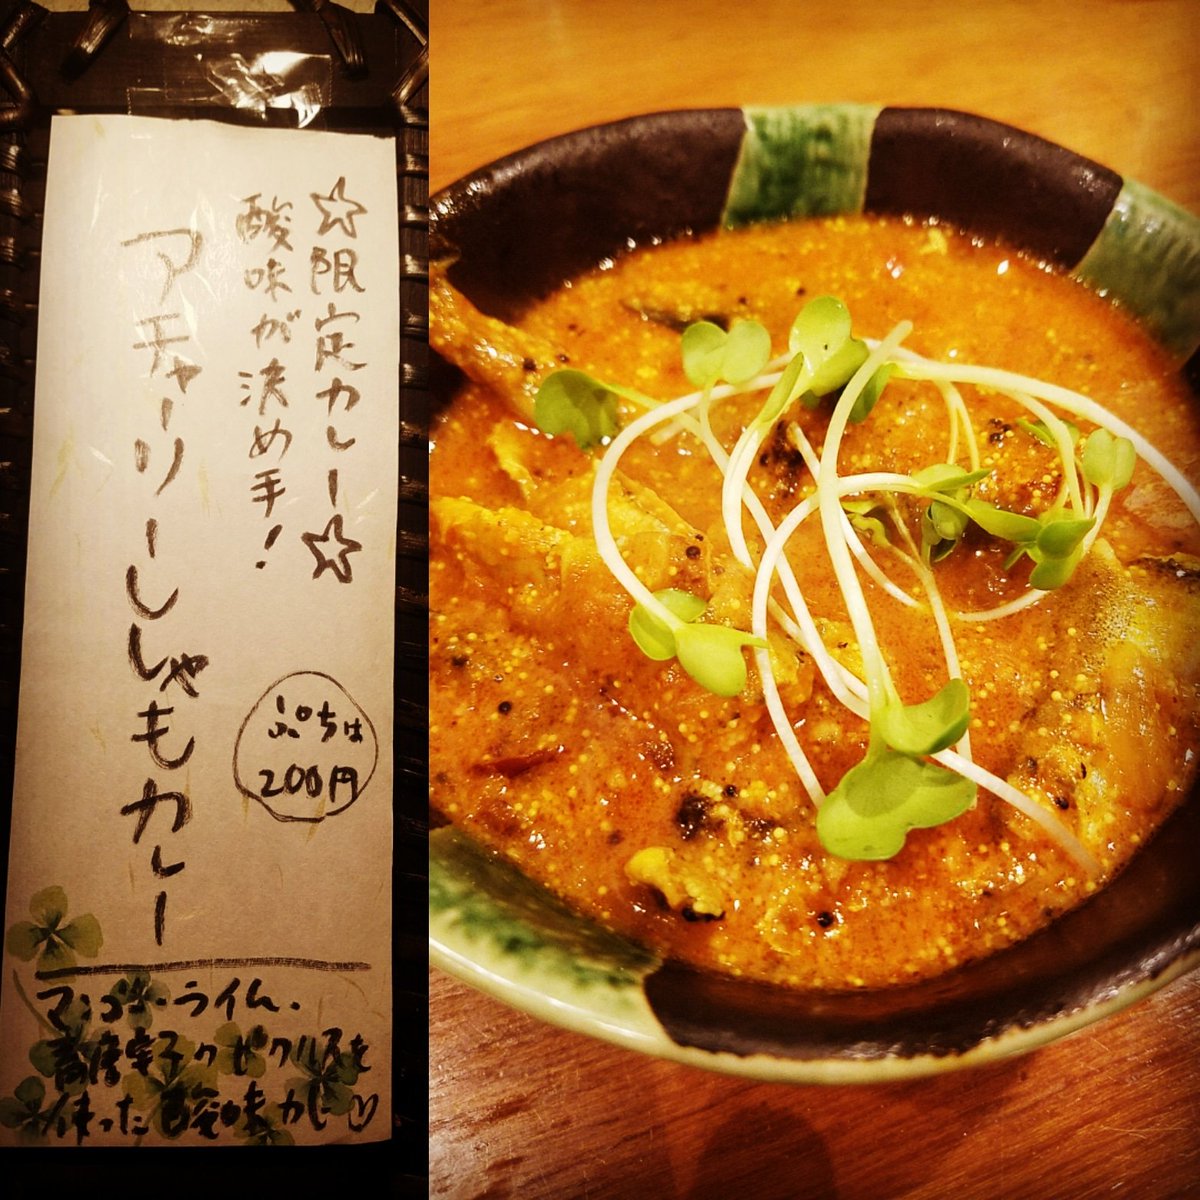 ☆限定カレー☆
酸味が決め手！
アチャーリーししゃもカレー
ぷちは
200円
マンゴー・ライム・
青唐辛子のピクルスを
使った酸味カレー♡